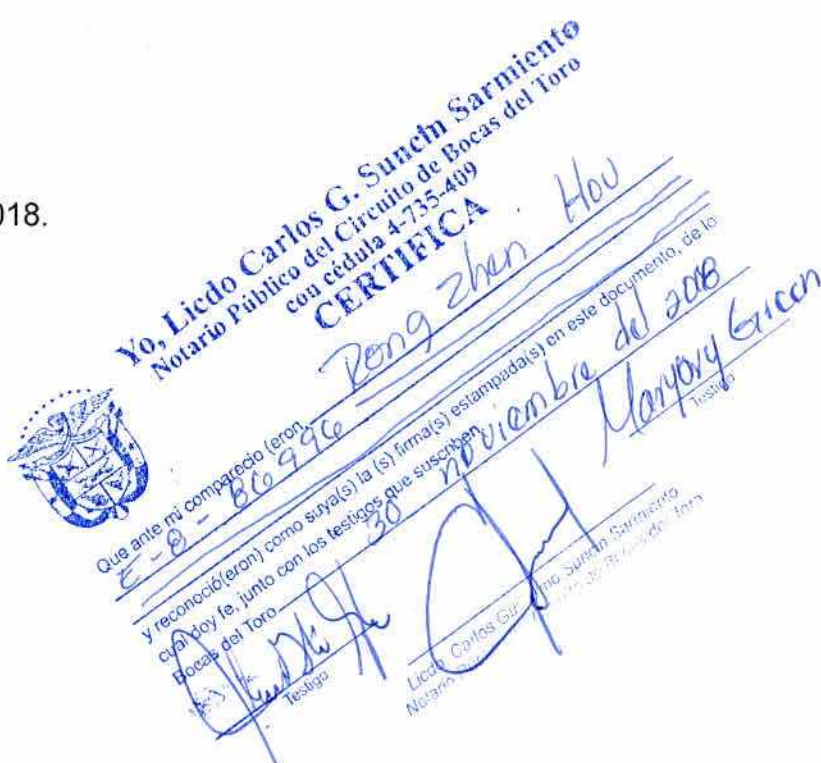 018.
Yo, Licdo Carlos G. Suncin Sarmiento
Notario Público del Circuito de Bocas del Toro
con cédula 4-735-409
CERTIFICA
Que ante mi comparecio (eron Rong Zhen Hou
E-8-86996
y reconoció(eron) como suya(s) la (s) firma(s) estampada(s) en este documento, de lo
cual doy fe, junto con los testigos que suscriben
Bocas del Toro 30 noviembre del 2018
Maryory Green
Testigo
Testigo
Licdo. Carlos Gu mo Suncin Sarmiento
Notario